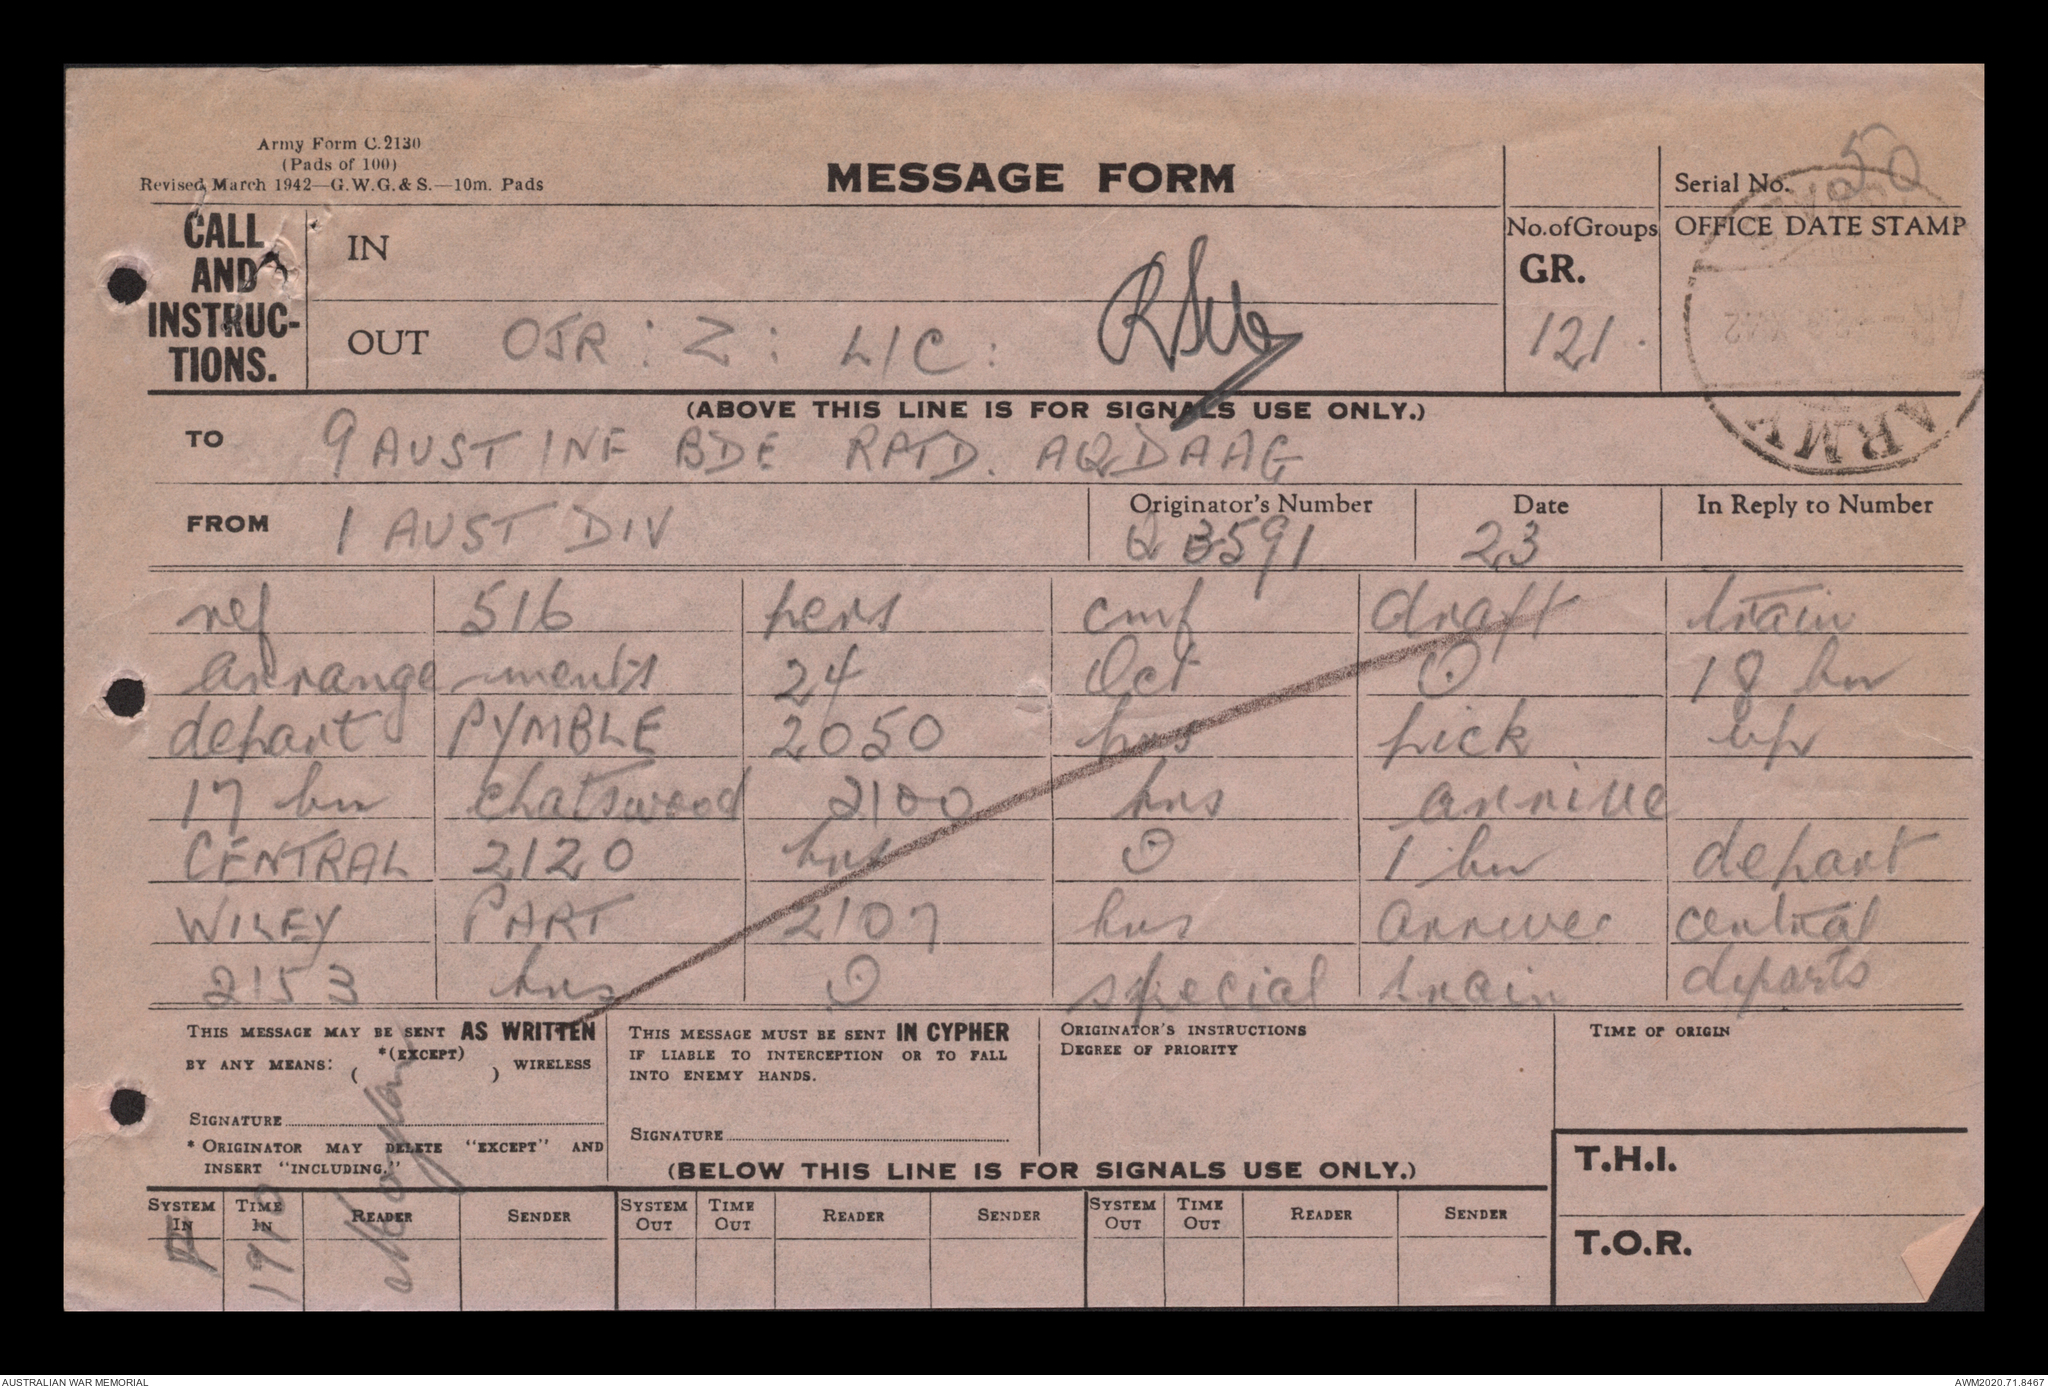 Army Form C.2130
(Pads of 100)
Revised March 1942—G.W.G.& S.—10m. Pads
MESSAGE FORM
Serial No. 50
CALL AND INSTRUC-TIONS.
IN
OUT OJR : Z : L/C :
No. of Groups
GR.
121.
OFFICE DATE STAMP
ARMY
(ABOVE THIS LINE IS FOR SIGNALS USE ONLY.)
TO 9 AUST INF BDE RPTD. AQDAAG
FROM 1 AUST DIV
Originator's Number
Q 3591
Date
23
In Reply to Number
ref 516 pers cmf draft train
arrange ments 24 Oct ⊙ 18 bn
depart PYMBLE 2050 hrs pick up
17 bn chatswood 2100 hrs arrive
CENTRAL 2120 hrs ⊙ 1 bn depart
WILEY PART 2107 hrs arrive central
2153 hrs ⊙ special train departs
THIS MESSAGE MAY BE SENT AS WRITTEN
BY ANY MEANS: *(EXCEPT) ( ) WIRELESS
SIGNATURE
* ORIGINATOR MAY DELETE "EXCEPT" AND
INSERT "INCLUDING."
THIS MESSAGE MUST BE SENT IN CYPHER
IF LIABLE TO INTERCEPTION OR TO FALL
INTO ENEMY HANDS.
SIGNATURE
ORIGINATOR'S INSTRUCTIONS
DEGREE OF PRIORITY
TIME OF ORIGIN
(BELOW THIS LINE IS FOR SIGNALS USE ONLY.)
T.H.I.
T.O.R.
SYSTEM IN TIME IN READER SENDER SYSTEM OUT TIME OUT READER SENDER SYSTEM OUT TIME OUT READER SENDER
1910
AUSTRALIAN WAR MEMORIAL
AWM2020.71.8467